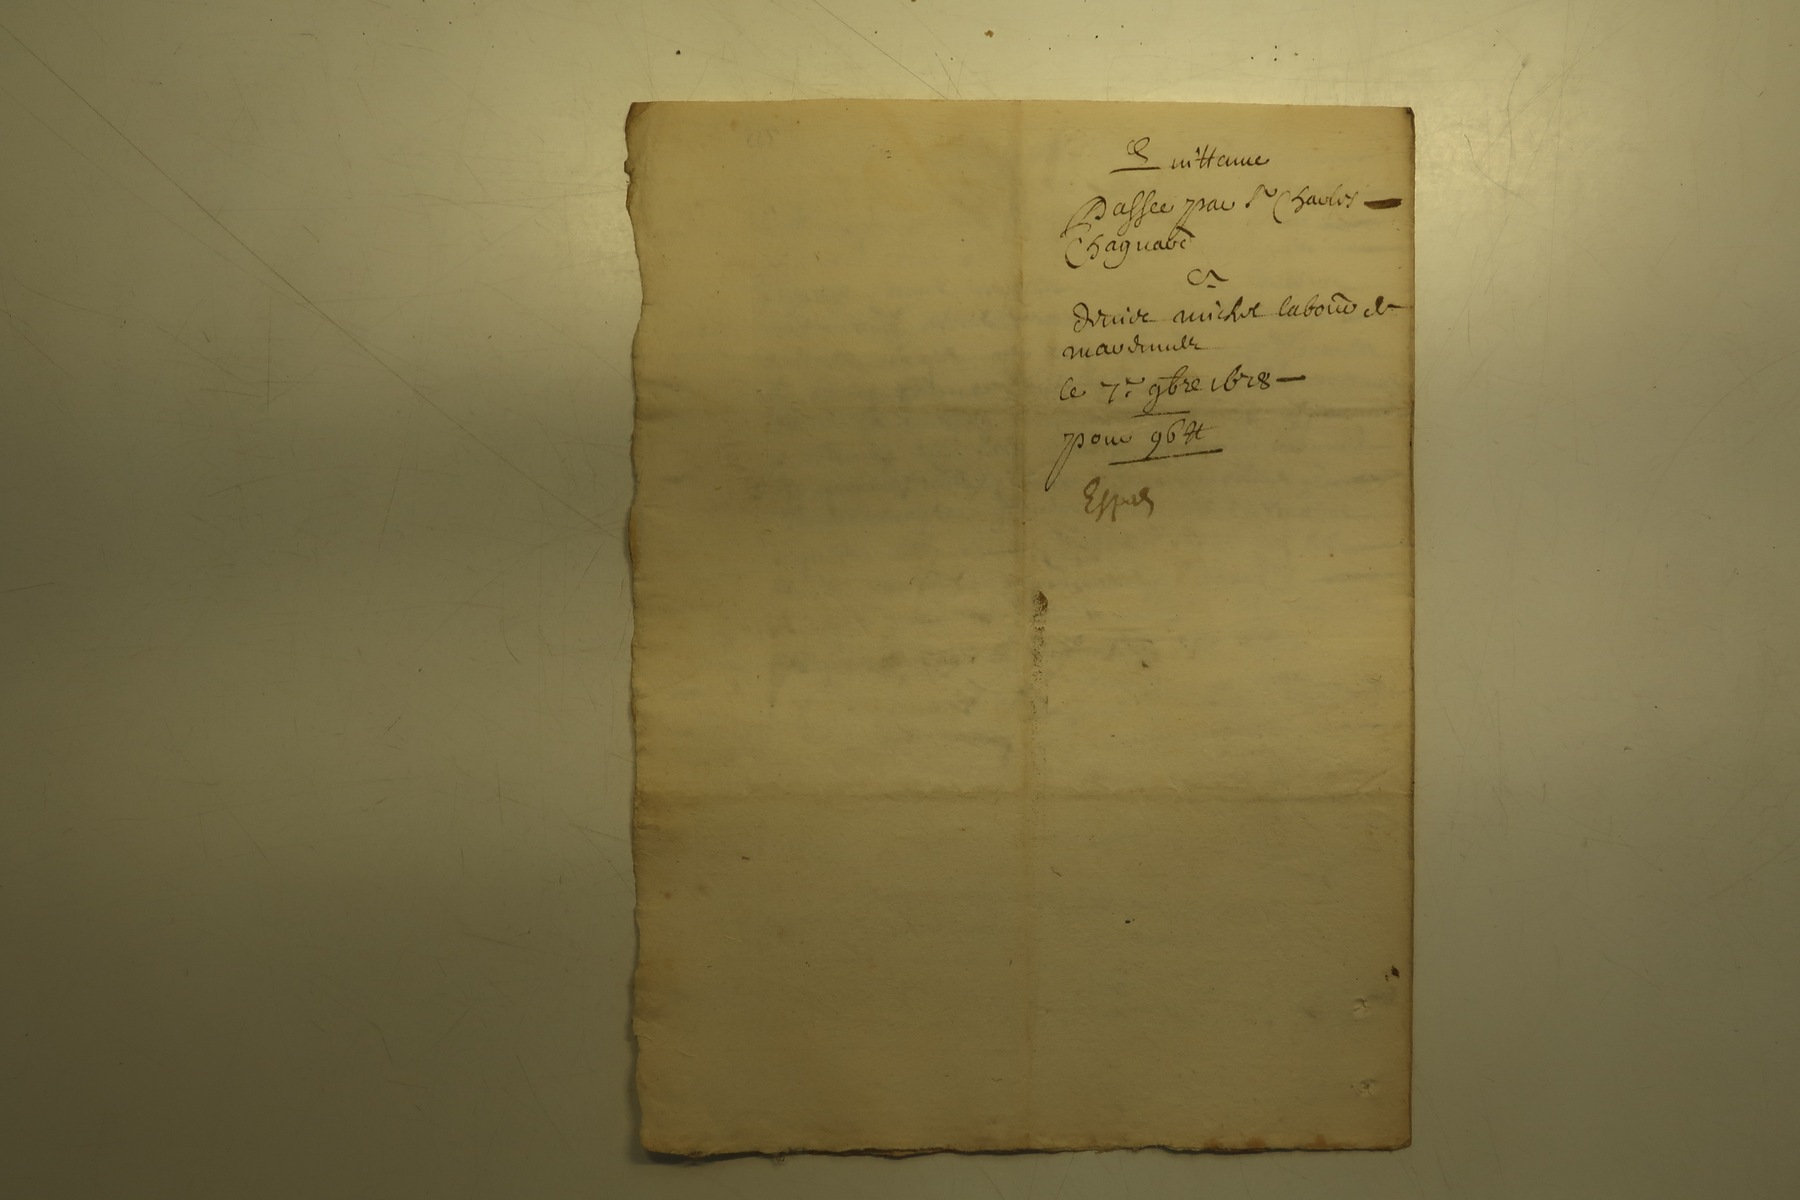 Quittance
Passee par Sr Charles
Chagnard
A
Denise michel labour de
le 7e 9bre 1678
pour 96 ₶